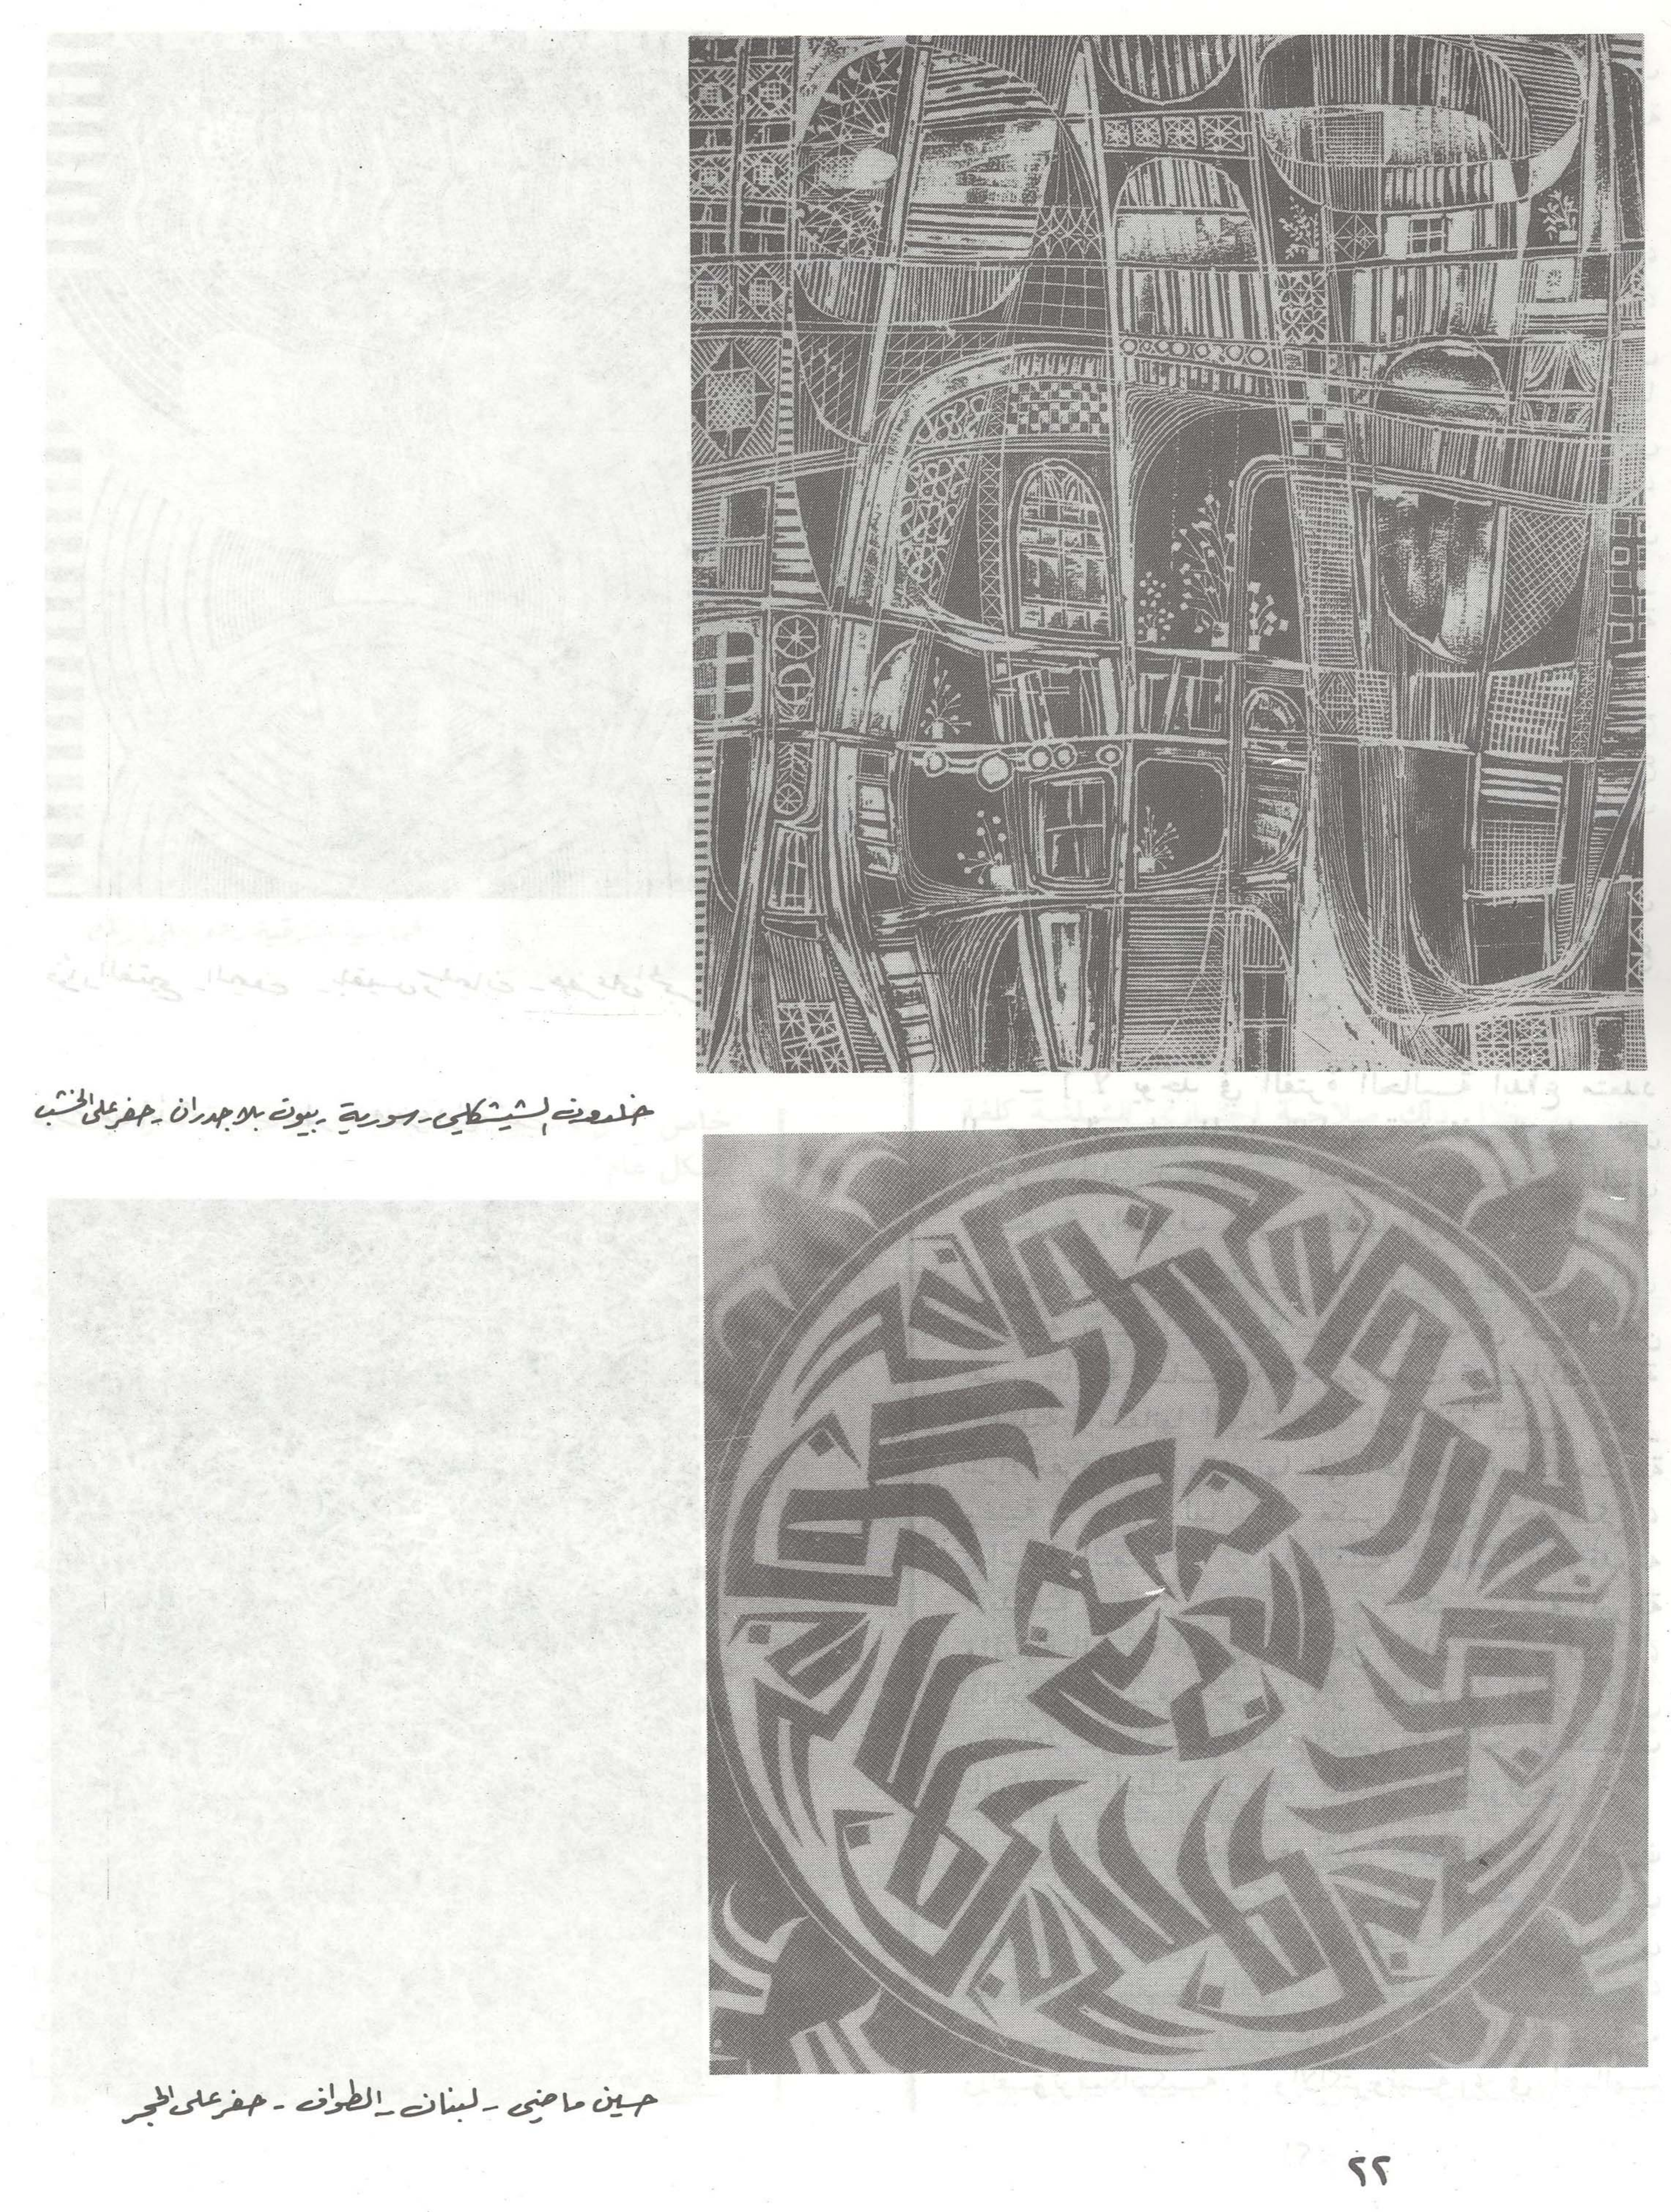 خلدون الشيشكلي - سورية - بيوت بلا جدران - حفر على الخشب
حسين ماضي - لبنان - الطواف - حفر على الحجر
٢٢